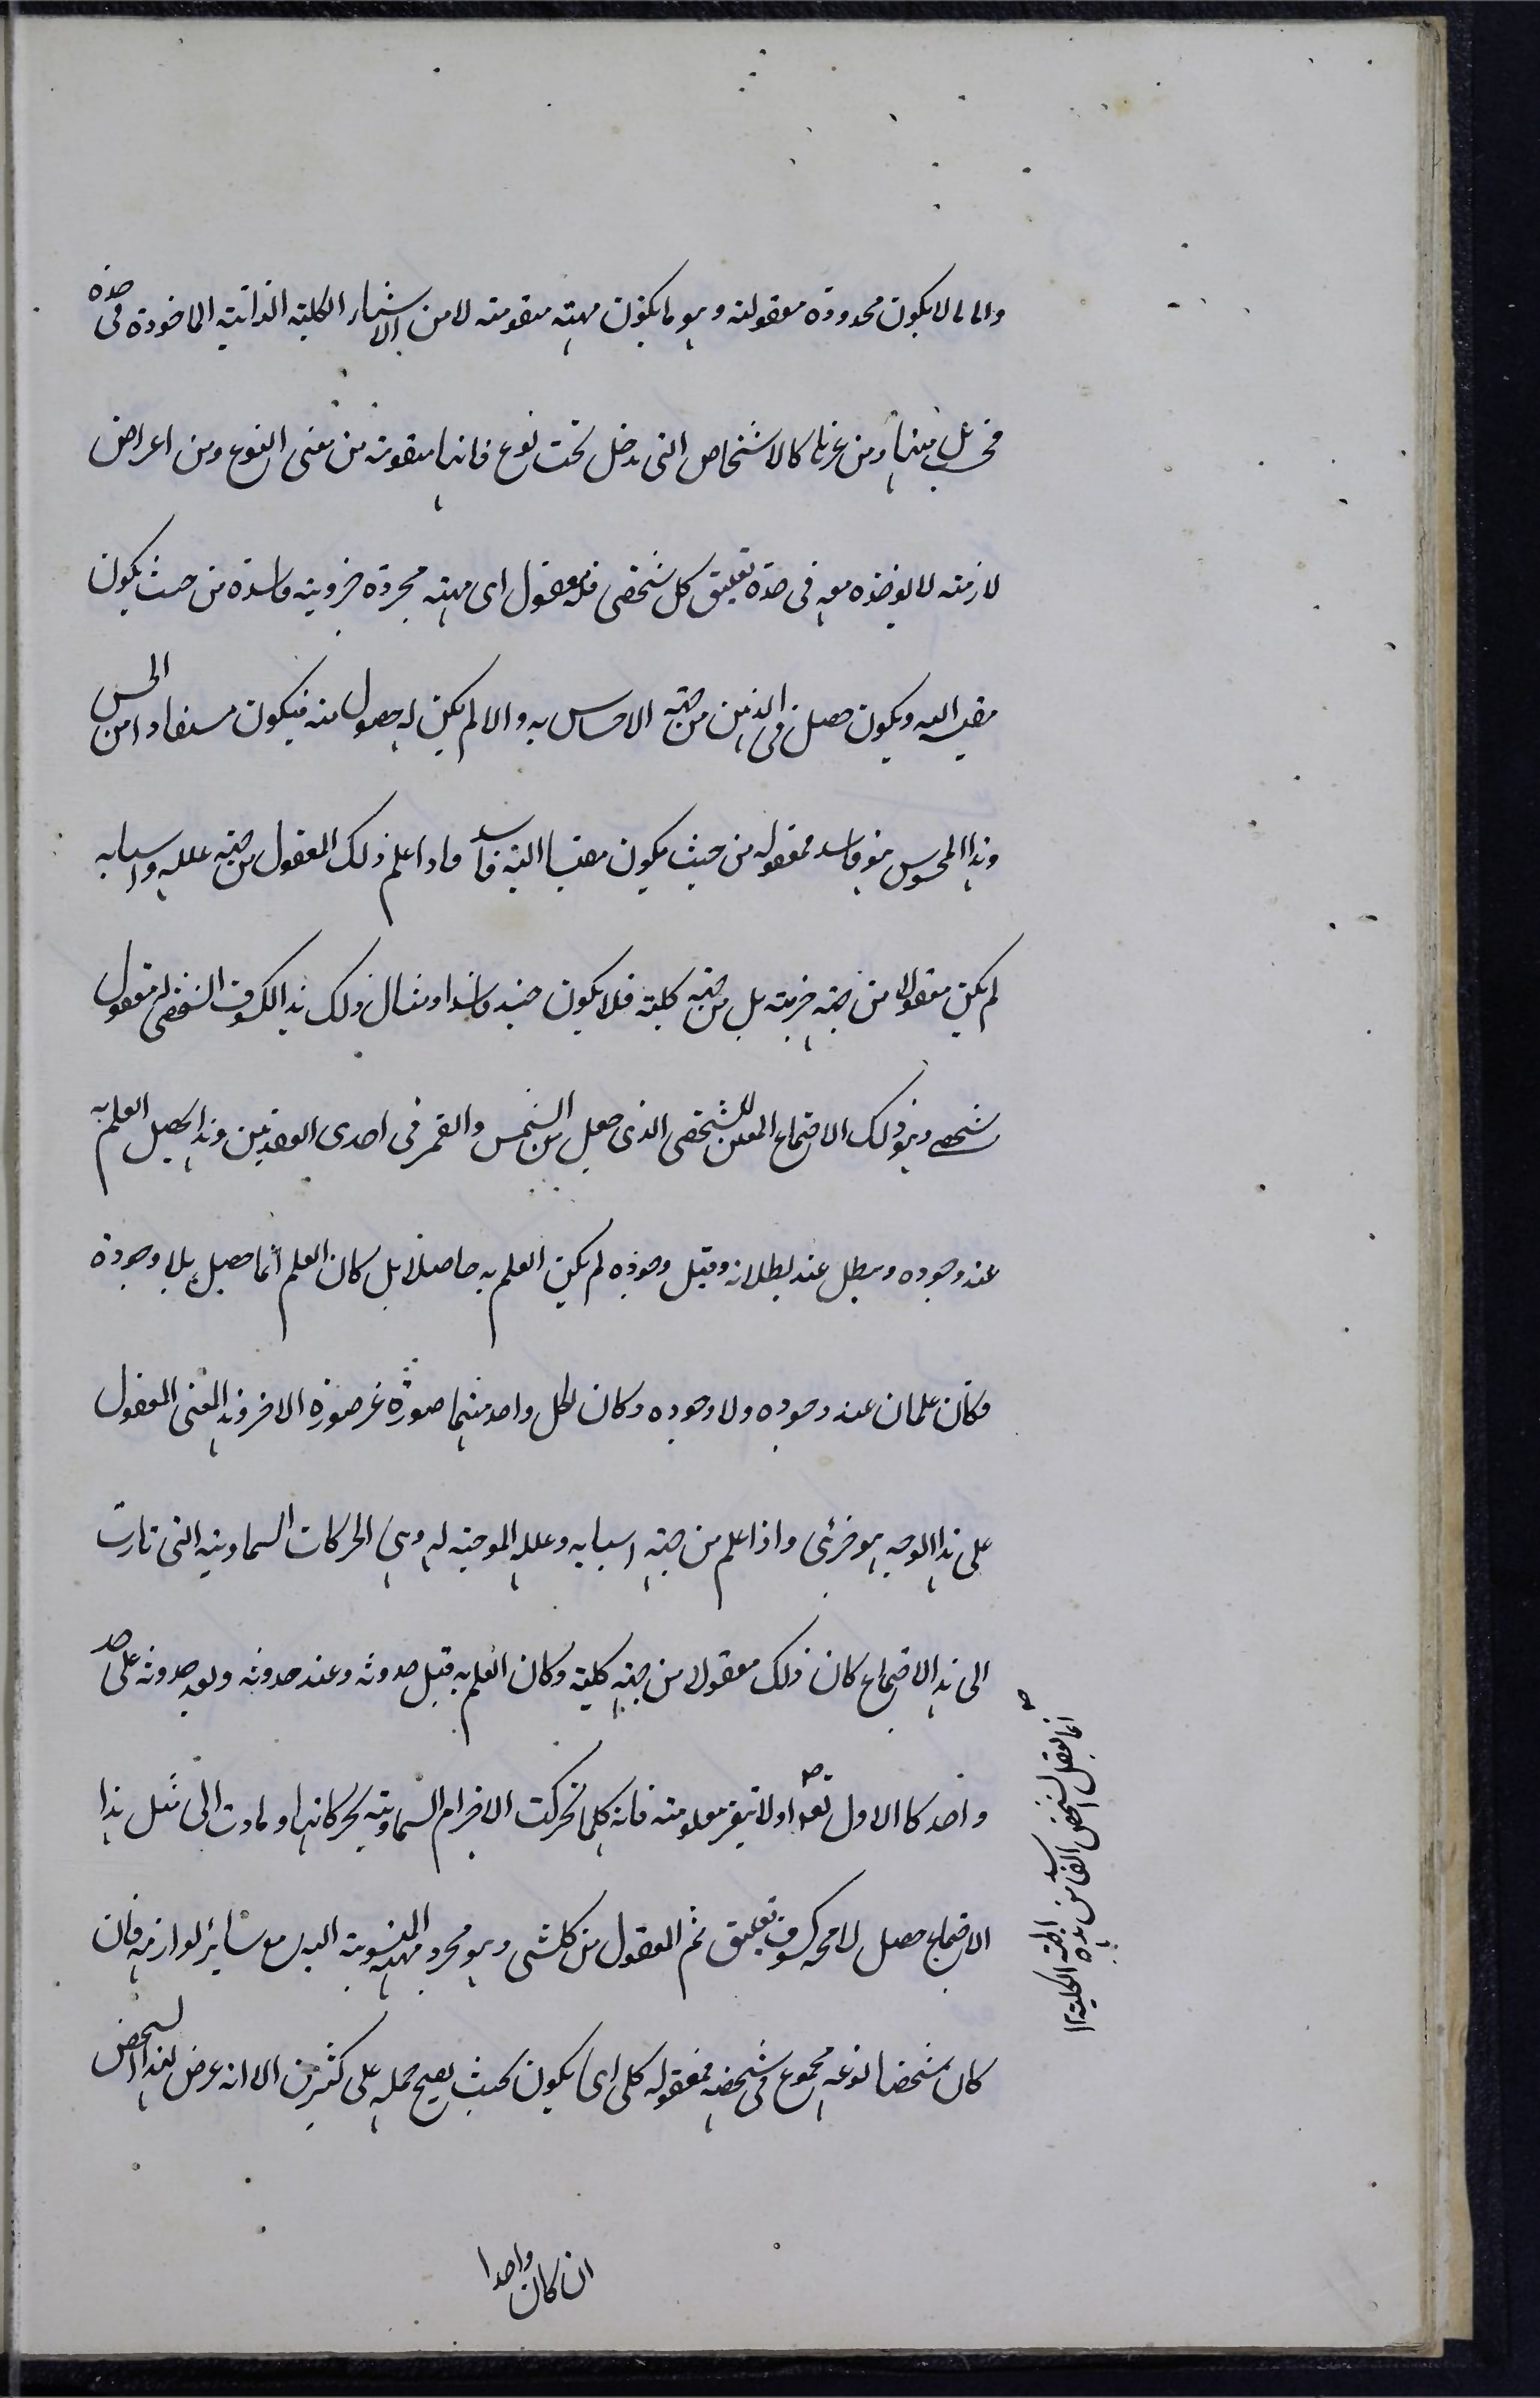 واما ما لا يكون محدودة معقولته وهو ما يكون مهيته متقومته لا من الاشياء الكلية الذاتية الماخوذة فى حده
فحسب بل منها ومن غيرها كالاشخاص التى يدخل تحت نوع فانها متقومة من معنى النوع ومن اعراض
لازمته لا يوخذه معه فى حده تعليق كل شخصى فله معقول اى مهيته مجردة جزوية فاسدة من حيث يكون
مقيسا اليه ويكون حصل فى الذهن من جهة الاحساس به والا لم يكن له حصول منه فيكون مستفادا من الحس
وهذا المحسوس هو فاسد فمعقوله من حيث يكون مقيسا اليه فاسد فاذا علم ذلك المعقول من جهة علله واسبابه
لم يكن معقولا من جهة جزيته بل من جهة كلية فلا يكون حينئذ فاسدا ومثال ذلك هذا الكسوف الشخصى له معقول
شخصى وهو ذلك الاجتماع المعين الشخصى الذى حصل بين الشمس والقمر فى احدى العقدتين وهذا يحصل العلم به
عند وجوده ويبطل عند بطلانه وقبل وجوده لم يكن العلم به حاصلا بل كان العلم انما حصل بلا وجوده
فكان علمان عند وجوده ولا وجوده وكان لكل واحد منهما صورة غير صورة الاخر وهذا المعنى المعقول
على هذا الوجه هو جزئى واذا علم من جهة اسبابه وعلله الموجبة له وهى الحركات السماوية التى تادت
الى هذا الاجتماع كان ذلك معقولا من جهة كلية وكان العلم به قبل حدوثه وعند حدوثه وبعد حدوثه على حد
واحد كالاول بعده اولا تتغير معلومته فانه كلما تحركت الاجرام السماوية بحركاتها وتادت الى مثل هذا
الاجتماع حصل لا محه كسوف تعليق ثم المعقول من كلشى وهو مجرد مهيته المنسوبة اليه مع سائر لوازمه فان
كان شخصا نوعه مجموع فى شخصه فمعقوله كلى اى يكون بحيث يصح حمله على كثيرين الا انه عرض لهذا الشخص
ان كان واحدا
انما يعقل الشخص الفاسد من هذه الجهة الكلية ١٢